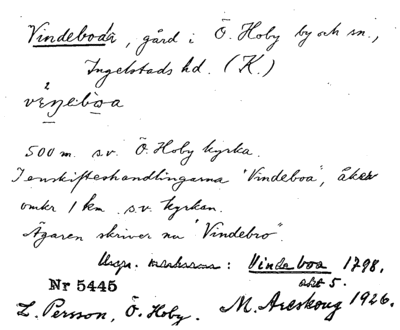 Vindeboda, gård i Ö. Hoby by och sn.,
Ingelstads hd. (K.)
500 m. s.v. Ö. Hoby kyrka.
I enskifteshandlingarna "Vindeboa", åker
omkr 1 km. s.v. kyrkan.
Ägaren skriver nu "Vindebro".
: Vindeboa 1798.
akt 5.
Nr 5445
L. Persson, Ö. Hoby. M. Areskoug 1926.